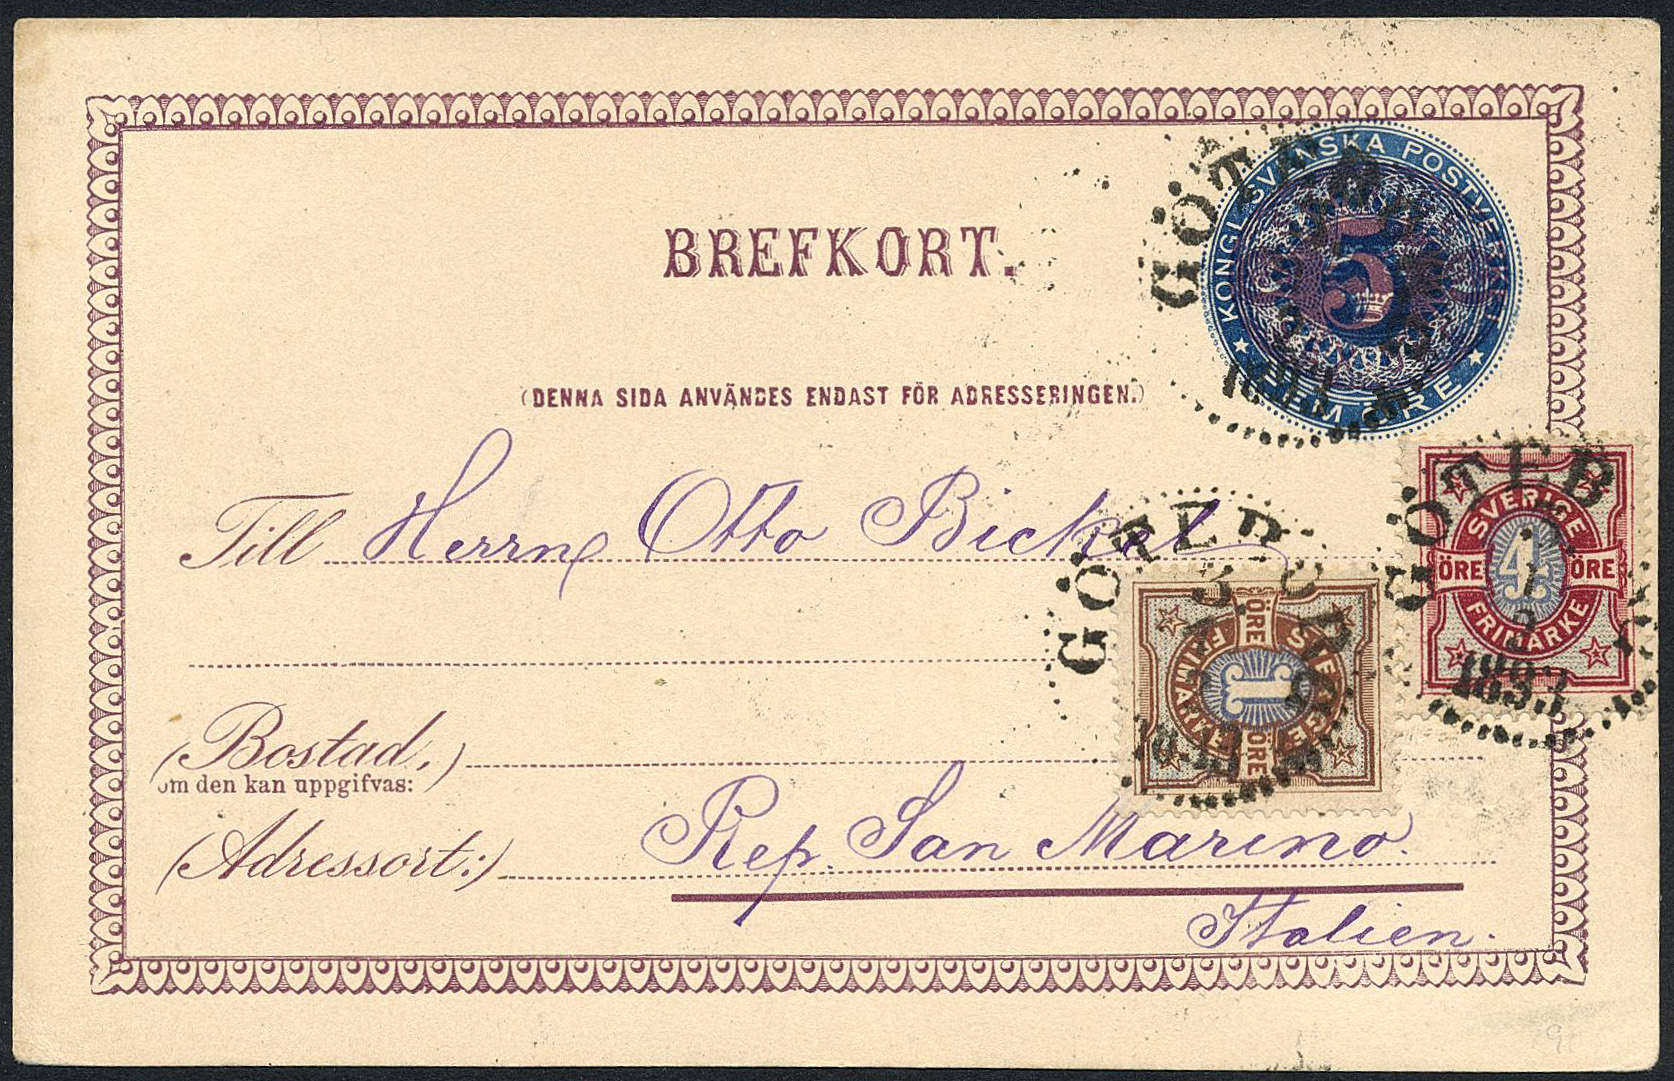 KONGL. SVENSKA POSTVERKET
5
FEM ÖRE
BREFKORT.
(DENNA SIDA ANVÄNDES ENDAST FÖR ADRESSERINGEN.)
GÖTEB
SVERIGE
ÖRE 4 ÖRE
FRIMÄRKE
1893
Till Herrn Otto Bickel
GÖTEBORG
SVERIGE
ÖRE 1 ÖRE
FRIMÄRKE
(Bostad,)
om den kan uppgifvas:
(Adressort:) Rep. San Marino.
Italien.